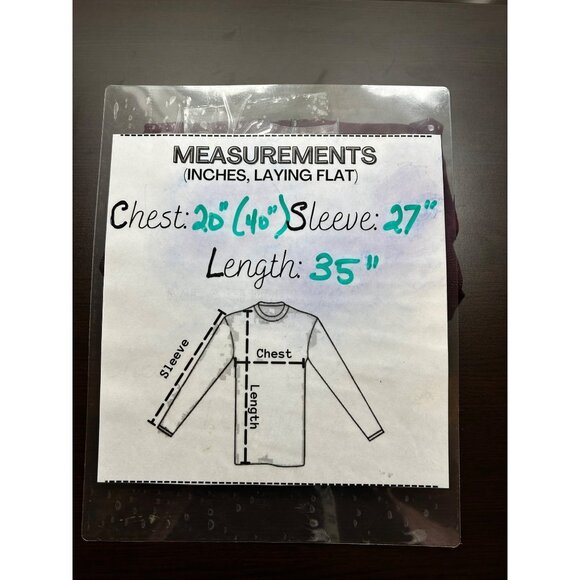 MEASUREMENTS
(INCHES, LAYING FLAT)
Chest: 20" (40") Sleeve: 27"
Length: 35"
Sleeve
Chest
Length